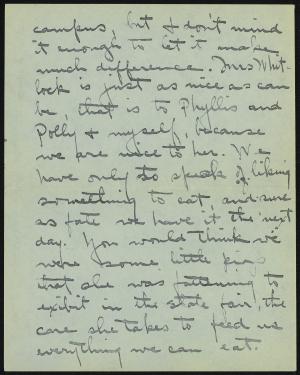 campus, but I don't mind
it enough to let it make
much difference. Mrs Whit-
lock is just as nice as can
be, that is to Phyllis and
Polly & myself, because
we are nice to her. We
have only to speak of liking
something to eat, and sure
as fate we have it the next
day. You would think we
were some little pigs
that she was fattening to
exibit in the state fair, the
care she takes to feed us
everything we can eat.